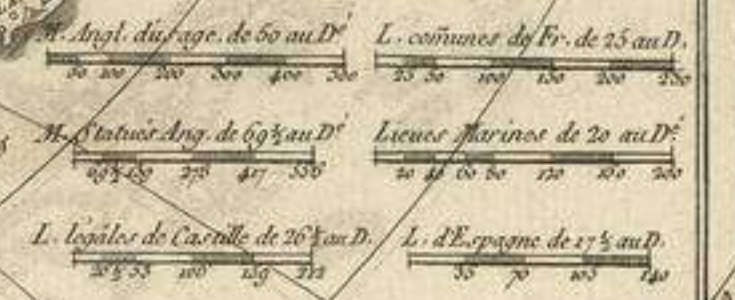 M. Angl. du sage. de 60 au Dé
50 100 200 300 400 500
L. comunes de Fr. de 25 au D.
25 50 100 150 200 250
M. Statués Ang. de 69½ au Dé
69½ 139 278 417 556
Lieues Marines de 20 au Dé
20 40 60 80 120 160 200
L. légales de Castille de 26½ au D.
26½ 53 106 159 212
L. d'Espagne de 17½ au D.
35 70 105 140